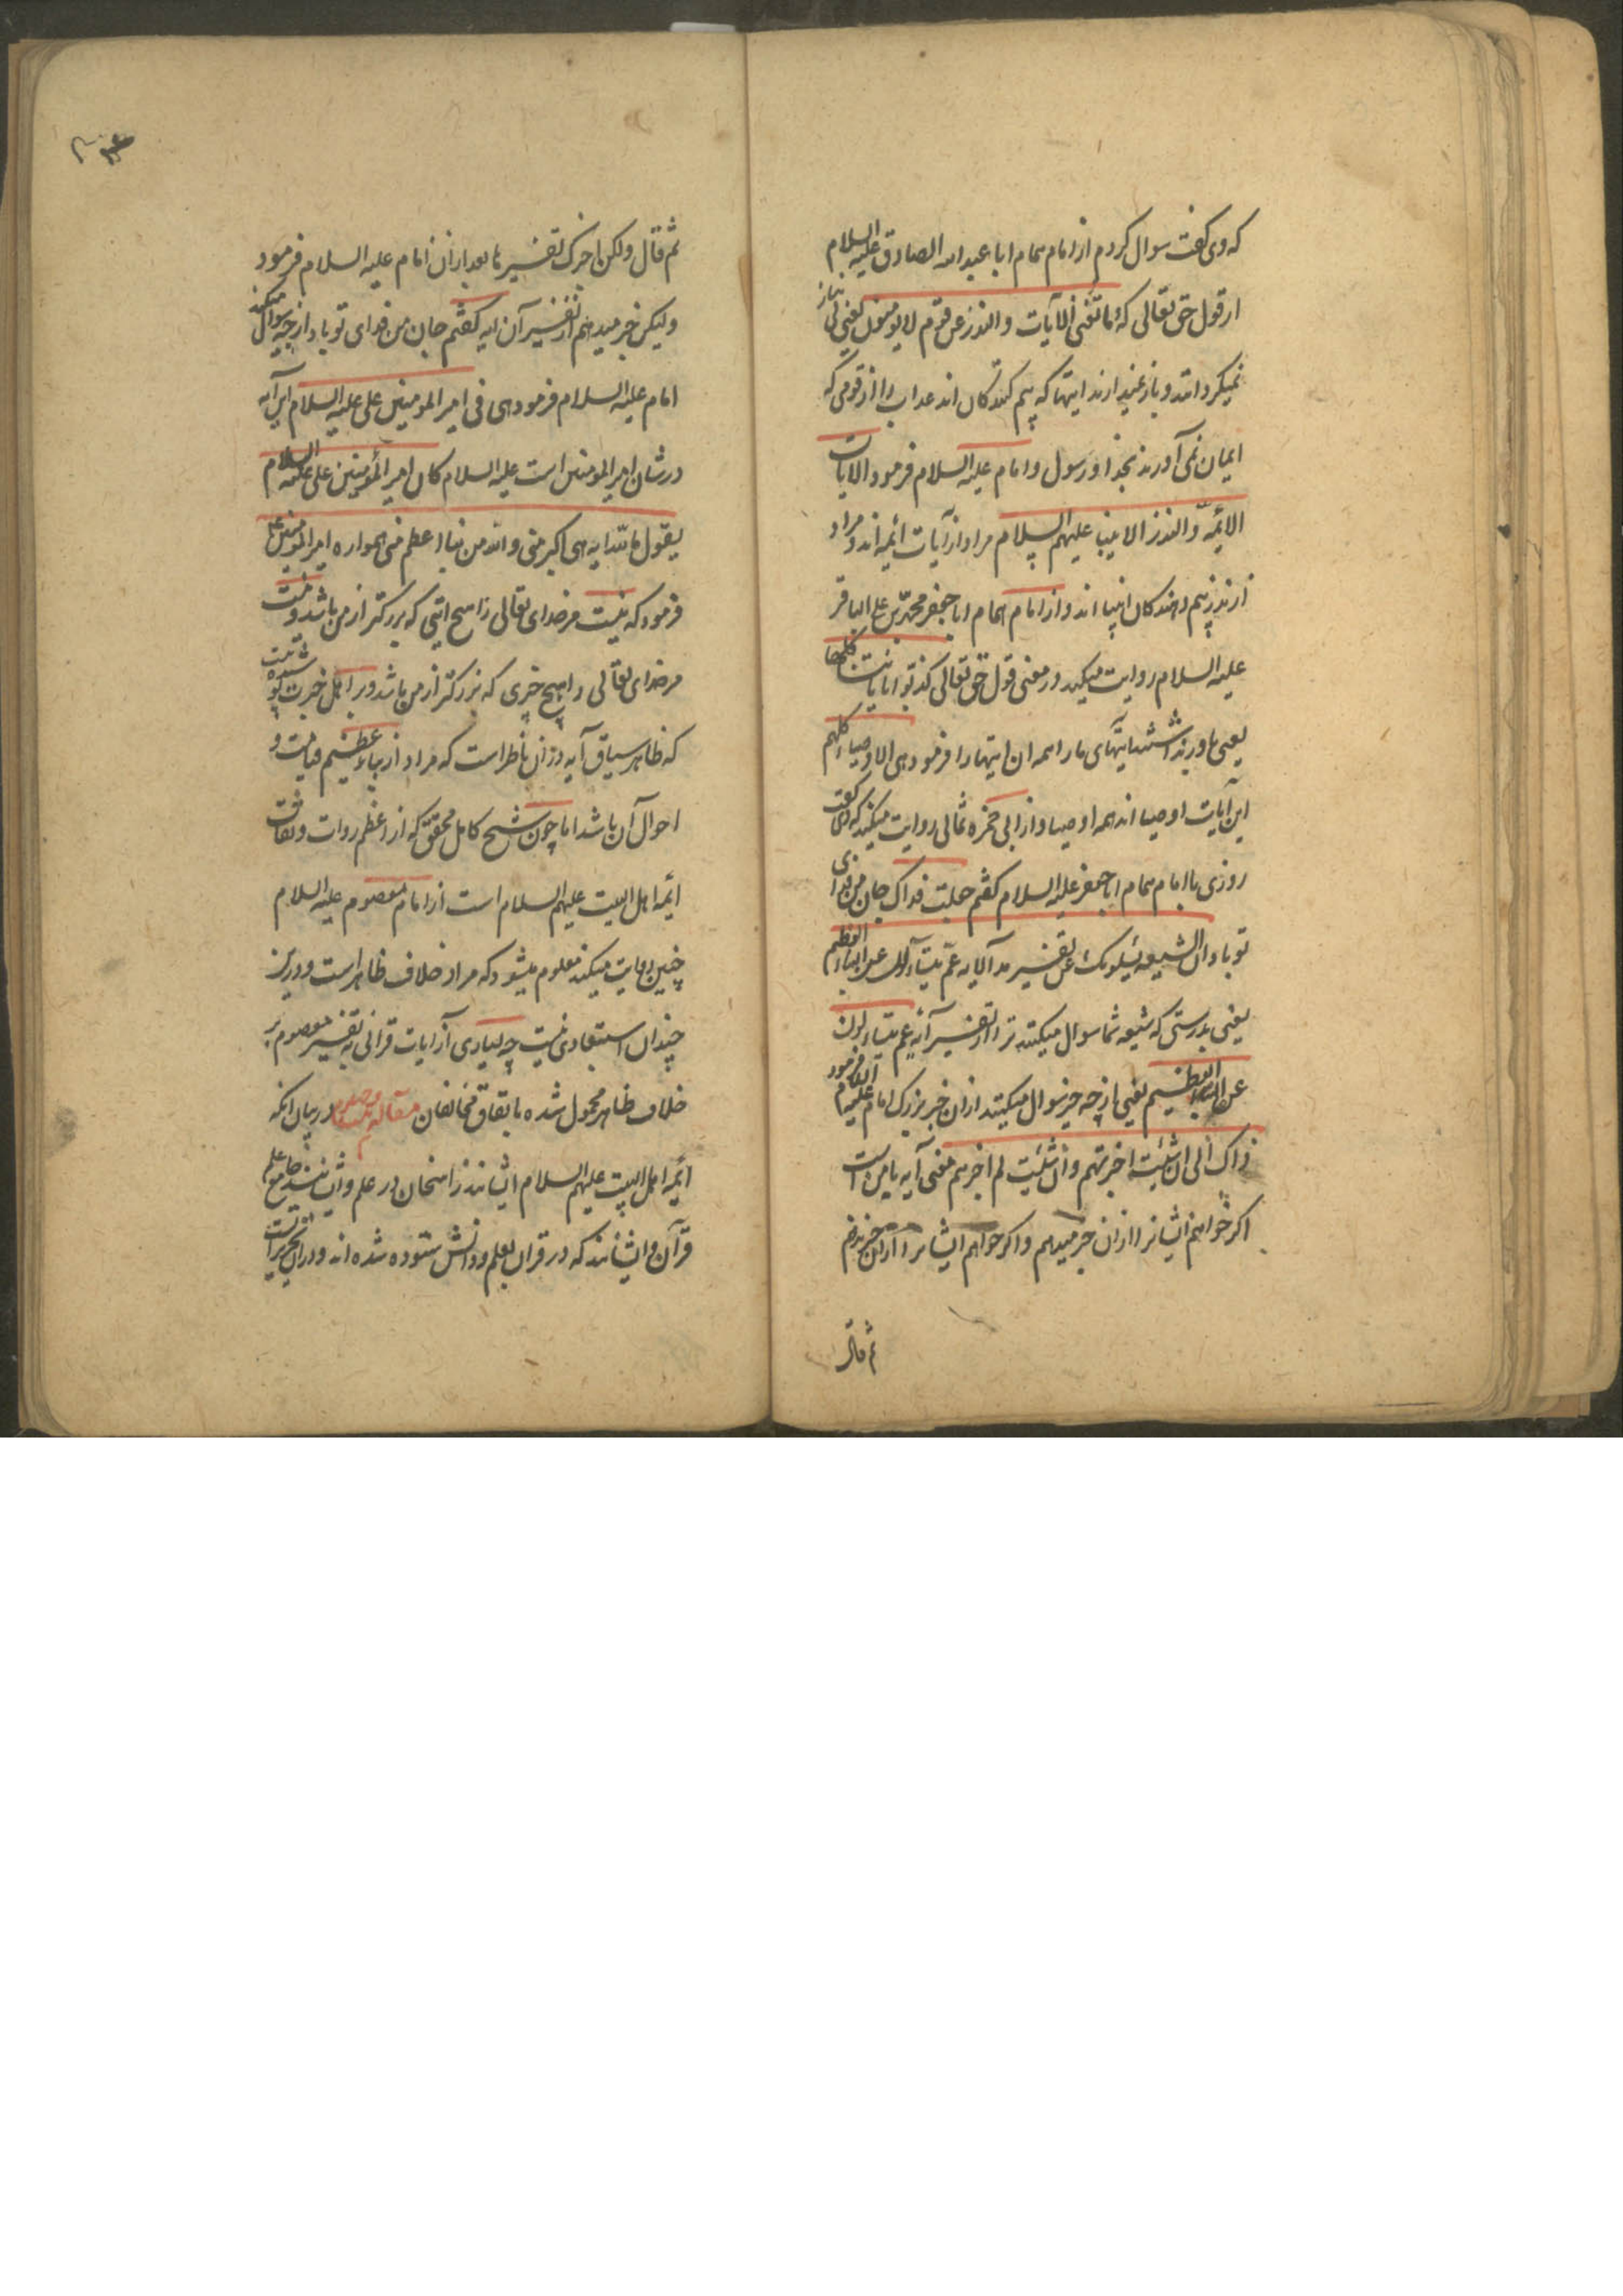 که وی گفت سوال کردم از امام همام ابا عبد الله الصادق علیه السلام
از قول حق تعالی که و ما تغنی الآیات والنذر عن قوم لا یومنون یعنی بی نیاز
نمیگردانند و باز نمیدارند ایتها که بیم کنندکان اند عذاب را از قومی که
ایمان نمی آورند بخدا و رسول و امام علیه السلام فرمود الایات
الائمّه والنذر الانبیا علیهم السلام مراد از آیات ائمه اند و مراد
از نذر بیم دهندکان انبیا اند و از امام همام ابا جعفر محمد بن علی الباقر
علیه السلام روایت میکند در معنی قول حق تعالی کذبوا بایاتنا کلها
یعنی باور نداشتند ایتهای ما را همه ان ایتها را فرمود هی الاوصیاء کلهم
این آیات اوصیا اند همه اوصیا و از ابی حمزه ثمالی روایت میکنند که وی گفت
روزی با امام همام ابا جعفر علیه السلام گفتم جعلت فداک جان من فدای
توباد ان الشیعه یسئلونک عن تفسیر هذه الایه عمّ یتساءلون عن النباء العظیم
یعنی بدرستی که شیعه شما سوال میکنند ترا از تفسیر آیه عم یتساءلون
عن النباء العظیم یعنی از چه خبر سوال میکنند ازان خبر بزرک امام علیه السلام فرمود
ذاک الی ان شئت اخبرتهم وان شئت لم اخبرهم معنی آیه با من است
اکر خواهم ایشانرا ازان خبر میدهم و اکر خواهم ایشانرا ازان خبر ندهم
ثم قال
ثم قال ولکن اخبرک بتفسیرها بعد ازان امام علیه السلام فرمود
ولیکن خبر میدهم از تفسیر آن ایه گفتم جان من فدای تو باد از چه سوال میکنند
امام علیه السلام فرمود هی فی امیر المومنین علی علیه السلام این آیه
در شان امیر المومنین است علیه السلام کان امیر المؤمنین علی علیه السلام
یقول ما لله ایه هی اکبر منی و لا لله من نباء اعظم منی همواره امیر المومنین علی
فرمود که نیست مر خدای تعالی را هیچ ایتی که بزرکتر از من باشد و نیست
مر خدای تعالی را هیچ خبری که بزرکتر از من باشد و بر اهل خبرت پوشیده نیست
که ظاهر سیاق آیه دران ناظر است که مراد از نباء عظیم قیامت و
احوال آن باشد اما چون شیخ کامل محقق که از اعظم روات و ثقات
ائمه اهل البیت علیهم السلام است از امام معصوم علیه السلام
چنین روایت میکند معلوم میشود که مراد خلاف ظاهر است و درین
چندان استبعادی نیست چه بسیاری از ایات قرانی به تفسیر معصوم بر
خلاف ظاهر محمول شده باتفاق مخالفان مقاله در بیان انکه
ائمه اهل البیت علیهم السلام ایشانند راسخان در علم و ایشانند جامع علم
قرآن و ایشانند که در قران بعلم و دانش ستوده شده اند و در